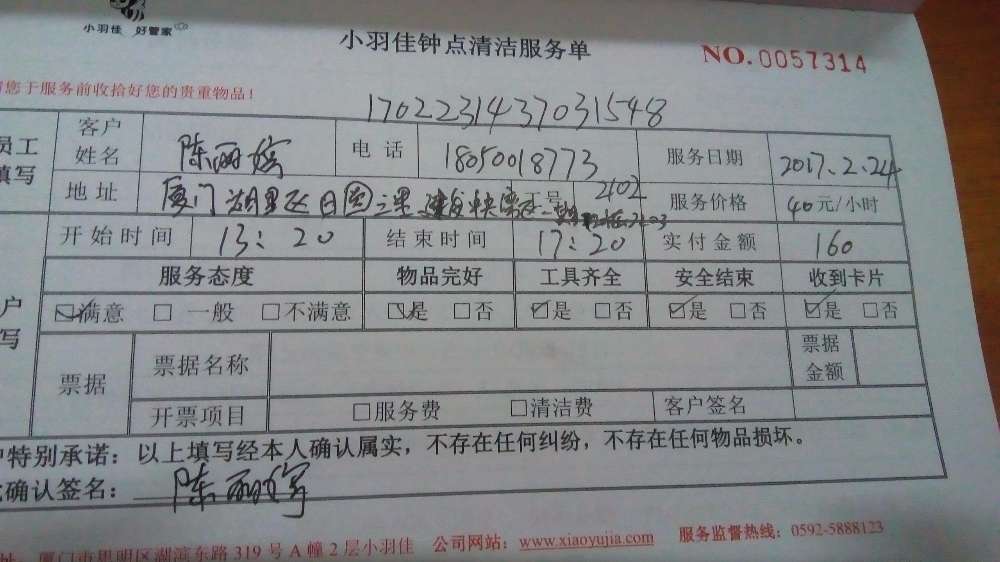 小羽佳 好管家
小羽佳钟点清洁服务单 NO. 0057314
您于服务前收拾好您的贵重物品!
17022314370315​48
员工 填写
客户姓名 陈丽 电话 18050018773 服务日期 2017.2.24
地址 厦门湖里区 2402 服务价格 40元/小时
开始时间 13:20 结束时间 17:20 实付金额 160
服务态度 物品完好 工具齐全 安全结束 收到卡片
户 写
☑满意 □ 一般 □不满意 ☑是 □否 ☑是 □否 ☑是 □否 ☑是 □否
票据 票据名称 票据金额
开票项目 □服务费 □清洁费 客户签名
户特别承诺：以上填写经本人确认属实，不存在任何纠纷，不存在任何物品损坏。
确认签名： 陈丽
厦门市思明区湖滨东路319号A幢2层小羽佳 公司网站：www.xiaoyujia.com 服务监督热线：0592-5888123